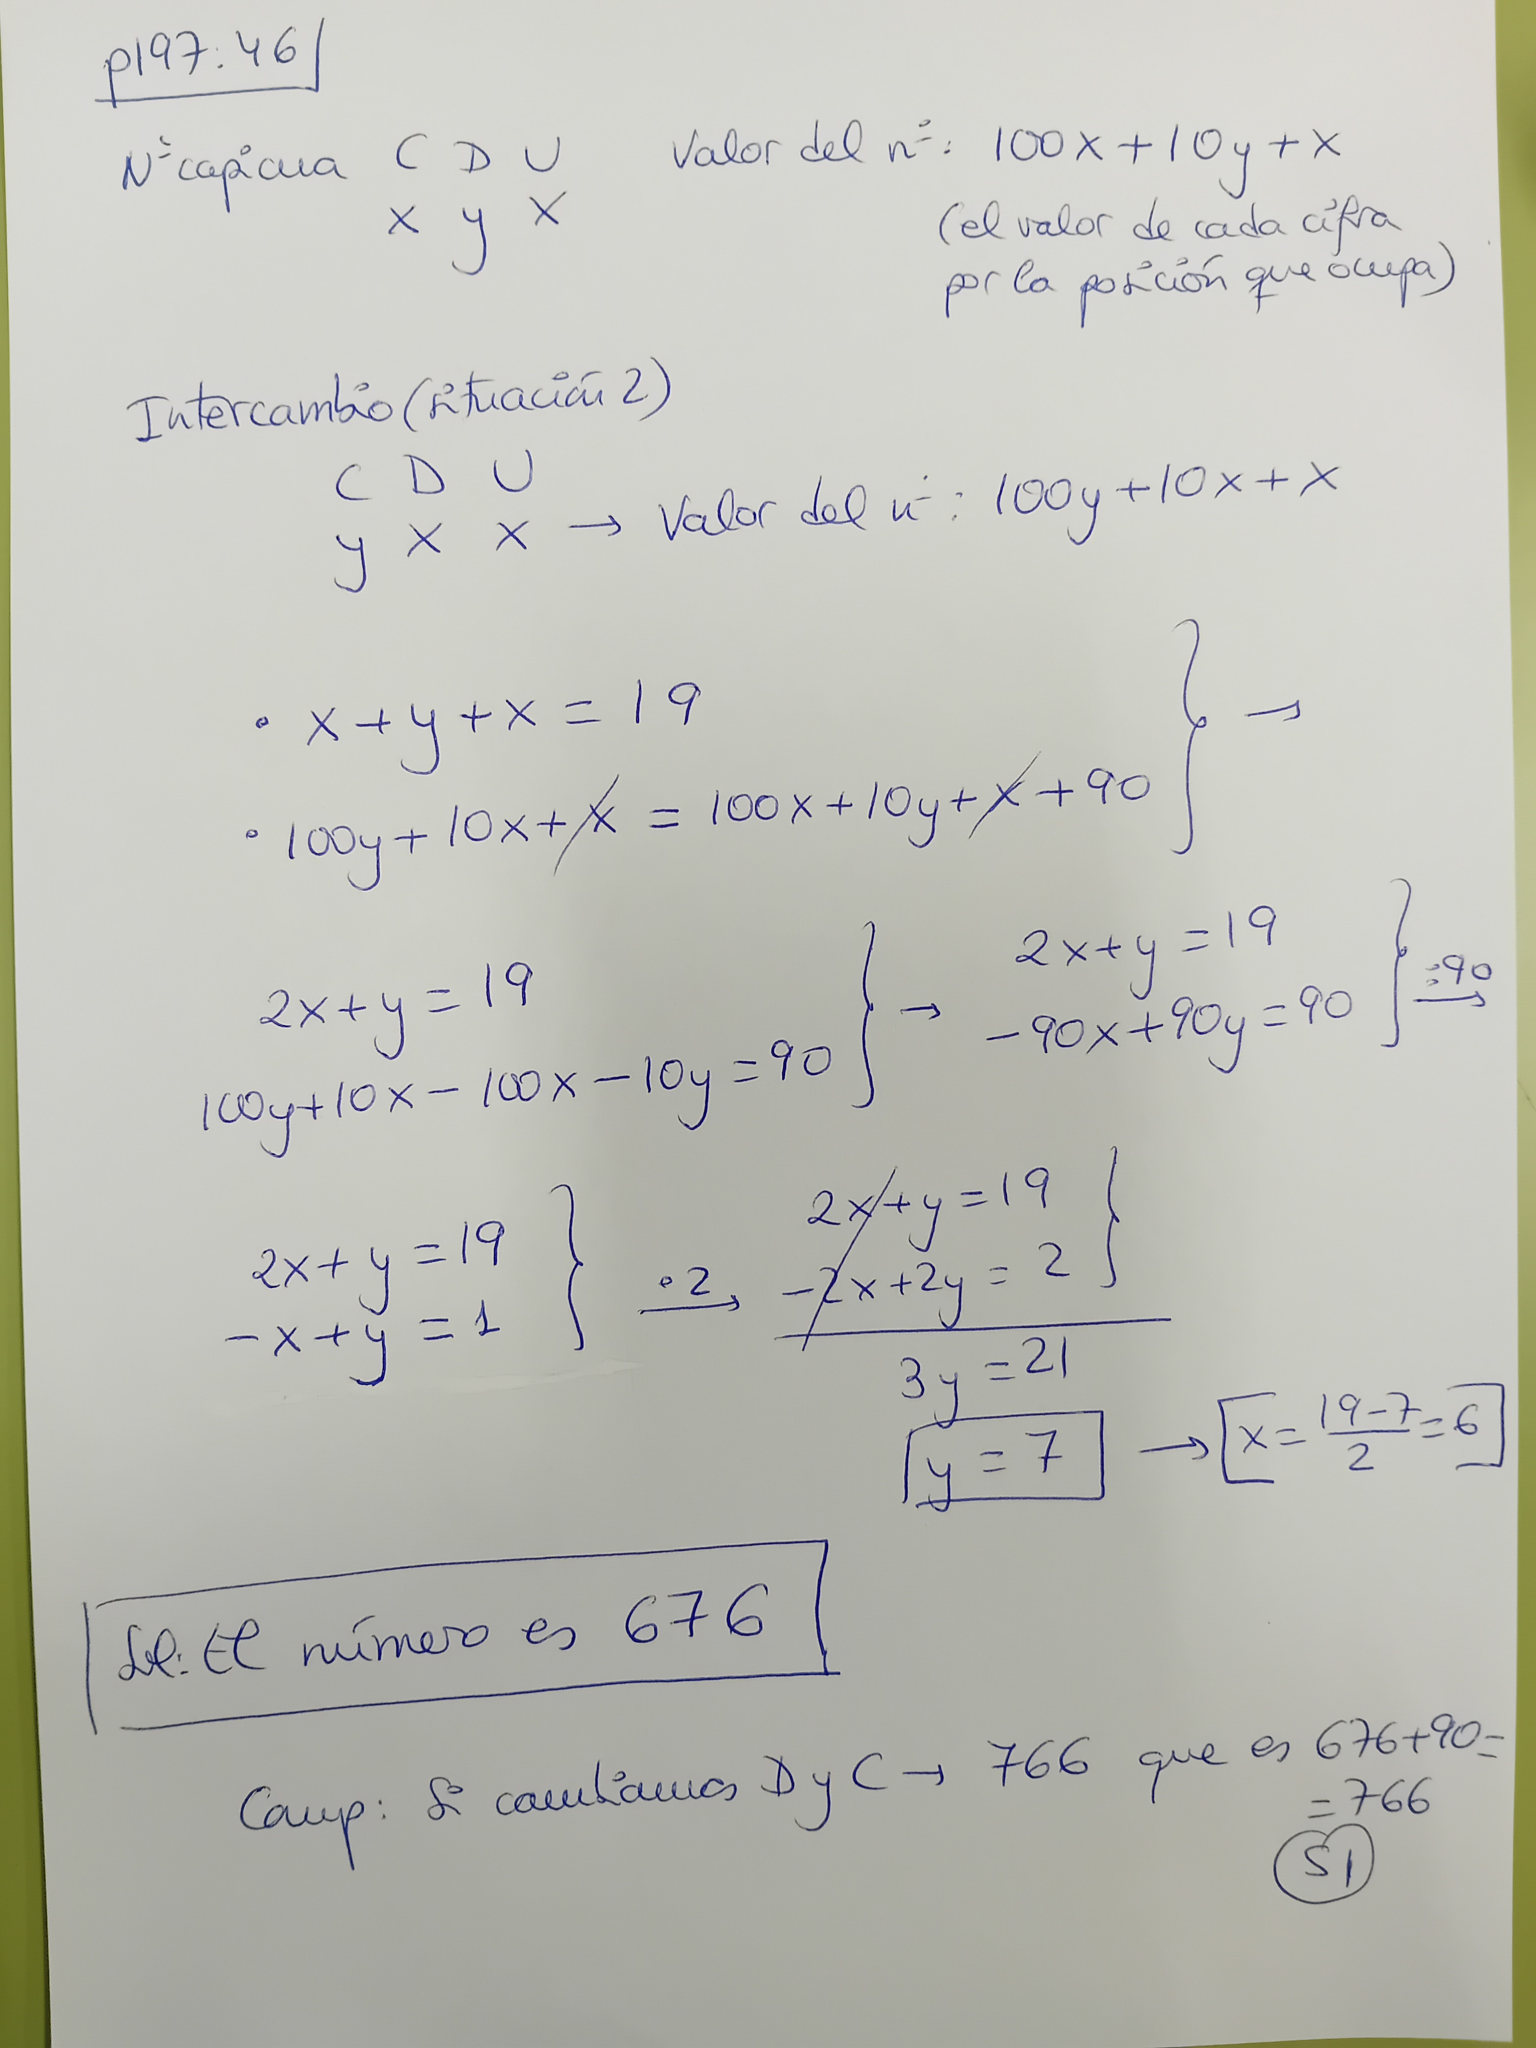 p197:46
Nº capicua C D U Valor del nº: 100x+10y+x
x y x (el valor de cada cifra
por la posición que ocupa)
Intercambio (situación 2)
C D U
y x x → Valor del nº: 100y+10x+x
• x+y+x=19
• 100y+10x+x = 100x+10y+x+90 } →
2x+y=19
100y+10x-100x-10y=90 } →
2x+y=19
-90x+90y=90 } :90 →
2x+y=19
-x+y=1 } •2 →
2x+y=19
-2x+2y=2 }
3y=21
y=7 → x=(19-7)/2=6
Sol: El número es 676
Comp: Si cambiamos D y C → 766 que es 676+90=
=766
SI